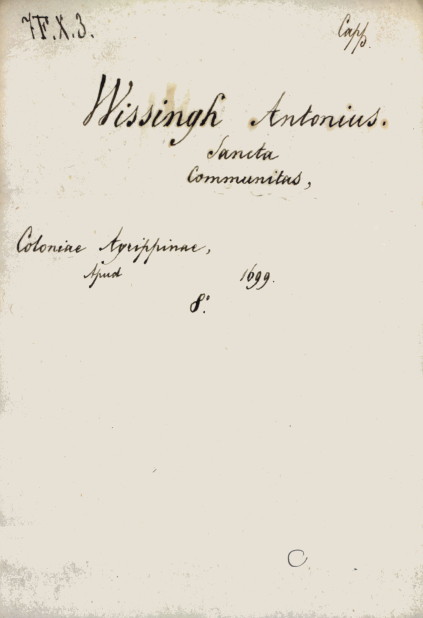 7F.X.3. Capp.
Wissingh Antonius.
Sancta
Communitas,
Coloniae Agrippinae,
Apud 1699.
8°.
C